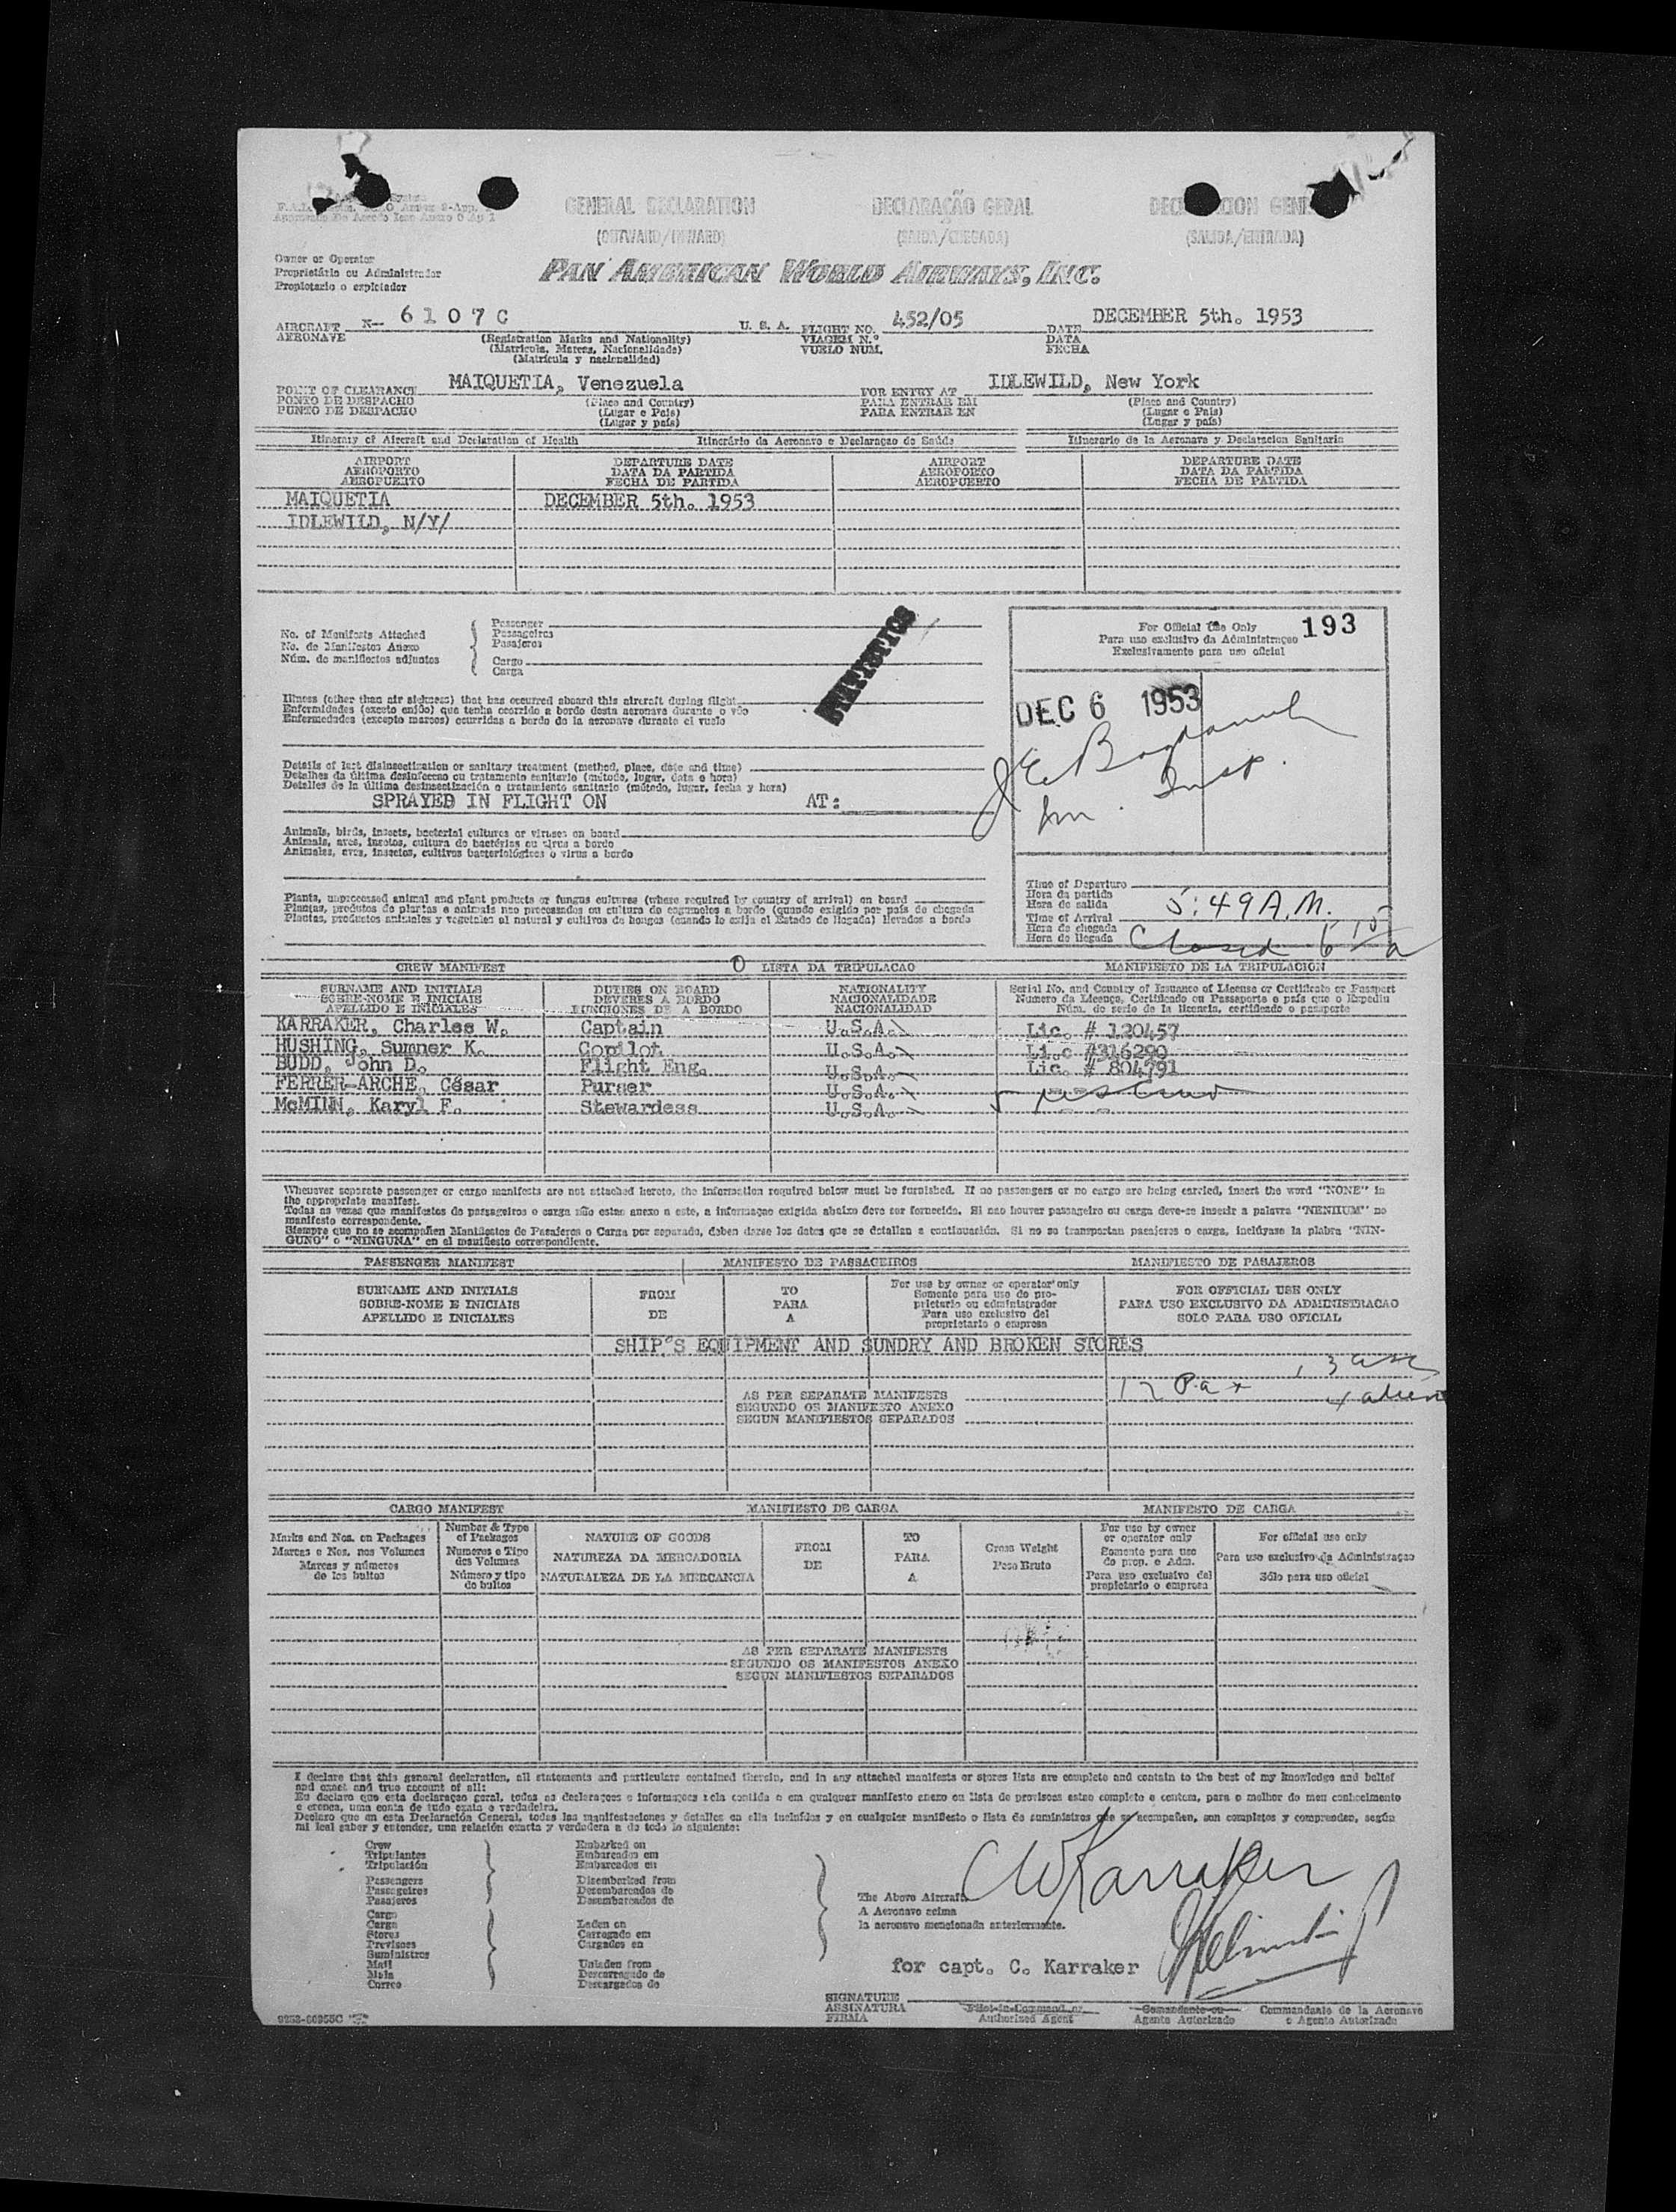 System
GENERAL DECLARATION
DECLARAÇÃO GERAL
GENE
(OUTWARD/INWARD)
(SAIDA/CHEGADA)
(SALIDA/ENTRADA)
Owner or Operator
Proprietário ou Administrador
Propietario o explotador
PAN AMERICAN WORLD AIRWAYS, INC.
AIRCRAFT N-- 6107C U. S. A. FLIGHT NO. 452/05 DATE DECEMBER 5th. 1953
AERONAVE (Registration Marks and Nationality) VIAGEM N.º DATA
(Matrícula, Marcas, Nacionalidade) VUELO NUM. FECHA
(Matrícula y nacionalidad)
POINT OF CLEARANCE MAIQUETIA, Venezuela FOR ENTRY AT IDLEWILD, New York
PONTO DE DESPACHO (Place and Country) PARA ENTRAR EM (Place and Country)
PUNTO DE DESPACHO (Lugar e País) PARA ENTRAR EN (Lugar e País)
(Lugar y país) (Lugar y país)
Itinerary of Aircraft and Declaration of Health Itinerário da Aeronave e Declaraçao de Saúde Itinerario de la Aeronave y Declaracion Sanitaria
AIRPORT DEPARTURE DATE AIRPORT DEPARTURE DATE
AEROPORTO DATA DA PARTIDA AEROPORTO DATA DA PARTIDA
AEROPUERTO FECHA DE PARTIDA AEROPUERTO FECHA DE PARTIDA
MAIQUETIA DECEMBER 5th. 1953
IDLEWILD, N/Y/
No. of Manifests Attached
No. de Manifestos Anexo
Núm. de manifiestos adjuntos
Passenger
Passageiros
Pasajeros
Cargo
Carga
STATISTICS
For Official Use Only 193
Para uso exclusivo da Administraçao
Exclusivamente para uso oficial
DEC 6 1953
Im. Insp.
Illness (other than air sickness) that has occurred aboard this aircraft during flight
Enfermidades (exceto enjôo) que tenha ocorrido a bordo desta aeronave durante o vôo
Enfermedades (excepto mareos) ocurridas a bordo de la aeronave durante el vuelo
Details of last disinsectization or sanitary treatment (method, place, date and time)
Detalhes da última desinfeccao ou tratamento sanitario (método, lugar, data e hora)
Detalles de la última desinsectización o tratamiento sanitario (método, lugar, fecha y hora)
SPRAYED IN FLIGHT ON AT:
Animals, birds, insects, bacterial cultures or viruses on board
Animais, aves, insetos, cultura de bactérias ou virus a bordo
Animales, aves, insectos, cultivos bacteriológicos o virus a bordo
Plants, unprocessed animal and plant products or fungus cultures (where required by country of arrival) on board
Plantas, produtos de plantas e animais nao processados ou cultura de cogumelos a bordo (quando exigido por país de chegada
Plantas, productos animales y vegetales al natural y cultivos de hongos (cuando lo exija el Estado de llegada) llevados a bordo
Time of Departure
Hora da partida
Hora de salida
Time of Arrival 5:49 A.M.
Hora da chegada
Hora de llegada Closed 6 15 a
CREW MANIFEST LISTA DA TRIPULACAO MANIFIESTO DE LA TRIPULACION
SURNAME AND INITIALS DUTIES ON BOARD NATIONALITY Serial No. and Country of Issuance of License or Certificate or Passport
SOBRE-NOME E INICIAIS DEVERES A BORDO NACIONALIDADE Numero da Licença, Certificado ou Passaporte e país que o Expediu
APELLIDO E INICIALES FUNCIONES DE A BORDO NACIONALIDAD Núm. de serie de la licencia, certificado o pasaporte
KARRAKER, Charles W. Captain U.S.A. Lic. # 120457
HUSHING, Sumner K. Copilot U.S.A. Li.c #316290
BUDD, John D. Flight Eng. U.S.A. Lic. # 804791
FERRER-ARCHE, César Purser U.S.A.
McMINN, Karyl F. Stewardess U.S.A.
Whenever separate passenger or cargo manifests are not attached hereto, the information required below must be furnished. If no passengers or no cargo are being carried, insert the word "NONE" in
the appropriate manifest.
Todas as vezes que manifestos de passageiros o carga não estao anexo a este, a informaçao exigida abaixo deve ser fornecida. Si nao houver passageiro ou carga deve-se inserir a palavra "NENHUM" no
manifesto correspondente.
Siempre que no se acompañen Manifiestos de Pasajeros o Carga por separado, deben darse los datos que se detallan a continuación. Si no se transportan pasajeros o carga, inclúyase la plabra "NIN-
GUNO" o "NINGUNA" en el manifiesto correspondiente.
PASSENGER MANIFEST MANIFESTO DE PASSAGEIROS MANIFIESTO DE PASAJEROS
SURNAME AND INITIALS FROM TO For use by owner or operator only FOR OFFICIAL USE ONLY
SOBRE-NOME E INICIAIS DE PARA Somente para uso do pro- PARA USO EXCLUSIVO DA ADMINISTRACAO
APELLIDO E INICIALES A prietario ou administrador SOLO PARA USO OFICIAL
Para uso exclusivo del
propietario o empresa
SHIP'S EQUIPMENT AND SUNDRY AND BROKEN STORES
17 Pax
4 alien
AS PER SEPARATE MANIFESTS
SEGUNDO OS MANIFESTO ANEXO
SEGUN MANIFIESTOS SEPARADOS
CARGO MANIFEST MANIFIESTO DE CARGA MANIFESTO DE CARGA
Marks and Nos. on Packages Number & Type of Packages NATURE OF GOODS FROM TO Gross Weight For use by owner or operator only For official use only
Marcas e Nos. nos Volumes Numeros e Tipo dos Volumes NATUREZA DA MERCADORIA DE PARA Peso Bruto Somente para uso do prop. e Adm. Para uso exclusivo da Administraçao
Marcas y números de los bultos Número y tipo de bultos NATURALEZA DE LA MERCANCIA A Para uso exclusivo del propietario o empresa Sólo para uso oficial
AS PER SEPARATE MANIFESTS
SEGUNDO OS MANIFESTOS ANEXO
SEGUN MANIFIESTOS SEPARADOS
I declare that this general declaration, all statements and particulars contained therein, and in any attached manifests or stores lists are complete and contain to the best of my knowledge and belief
and exact and true account of all:
Eu declaro que esta declaraçao geral, todas as declaraçoes e informaçoes nela contida o em qualquer manifesto anexo ou lista de provisoes estao completo e contem, para o melhor do meu conhecimento
e crenca, uma conta de tudo exata e verdadeira.
Declaro que en esta Declaración General, todas las manifestaciones y detalles en ella incluidos y en cualquier manifiesto o lista de suministros que se acompañen, son completos y comprenden, según
mi leal saber y entender, una relación exacta y verdadera a de todo lo siguiente:
Crew
Tripulantes
Tripulación
Passengers
Passageiros
Pasajeros
Cargo
Carga
Stores
Provisoes
Suministros
Mail
Mala
Correo
Embarked on
Embarcados em
Embarcados en
Disembarked from
Desembarcados de
Desembarcados de
Laden on
Carregado em
Cargados en
Unladen from
Descarregado de
Descargados de
The Above Aircraft
A Aeronave acima
la aeronave mencionada anteriormente.
CW Karraker
for capt. C. Karraker
SIGNATURE
ASSINATURA Pilot-in-Command or Comandante ou Commandante de la Aeronave
FIRMA Authorized Agent Agente Autorizado o Agente Autorizado